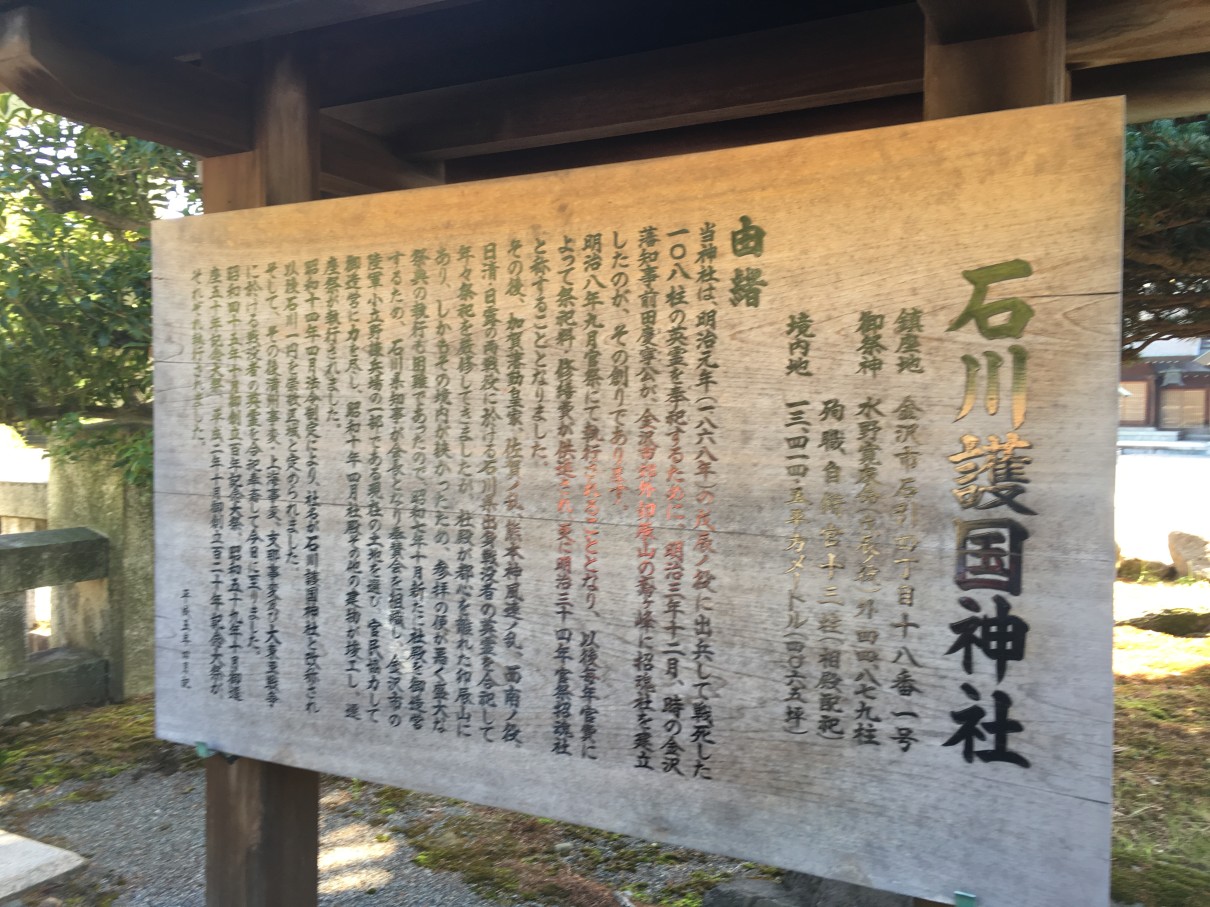 石川護国神社
鎮座地　金沢市石引四丁目十八番一号
御祭神　水野寛友命(合長以下)外四四八七九柱
殉職自衛官十三柱(相殿配祀)
境内地　一三、四一四・五平方メートル(四〇六五坪)
由緒
当神社は、明治元年(一八六八年)の戊辰ノ役に出兵して戦死した
一〇八柱の英霊を奉祀するために、明治三年十二月、時の金沢
藩知事前田慶寧公が、金沢市郊外卯辰山の鳶ヶ峰に招魂社を建立
したのが、その創りであります。
明治八年九月官祭にて執行されることとなり、以後毎年官費に
よって祭祀料・修繕費が供進され、更に明治三十四年官祭招魂社
と称することとなりました。
その後、加賀藩勤皇家、佐賀ノ乱、熊本神風連ノ乱、西南ノ役、
日清・日露の両戦役に於ける石川県出身戦没者の英霊を合祀して
年々祭祀を厳修してきましたが、社殿が都心を離れた卯辰山に
あり、しかもその境内が狭かったため、参拝の便が悪く盛大な
祭典の執行も困難であったので、昭和七年十月新たに社殿を御造営
するため、石川県知事が会長となり奉賛会を組織し、金沢市の
陸軍小立野練兵場の一部である現社の土地を選び、官民協力して
御造営に力を尽し、昭和十年四月社殿その他の建物が竣工し、遷
座祭が執行されました。
昭和十四年四月法令制定により、社名が石川護国神社と改称され
以後石川一円を崇敬区域と定められました。
そして、その後済州事変、上海事変、支那事変及び大東亜戦争
に於ける戦没者の英霊を合祀奉斎して今日に至りました。
昭和四十五年十月御創立百年記念大祭、昭和五十九年十月御遷
座五十年記念大祭、平成二年十月御創立百二十年記念大祭が
それぞれ執行されました。
平成五年四月記